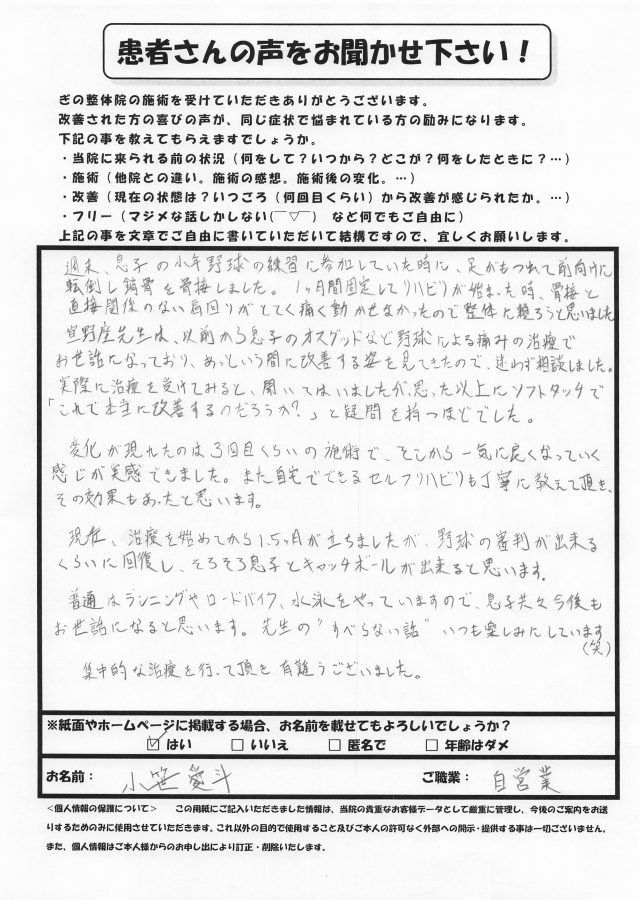 患者さんの声をお聞かせ下さい！
ぎの整体院の施術を受けていただきありがとうございます。
改善された方の喜びの声が、同じ症状で悩まれている方の励みになります。
下記の事を教えてもらえますでしょうか。
・当院に来られる前の状況（何をして？いつから？どこが？何をしたときに？…）
・施術（他院との違い。施術の感想。施術後の変化。…）
・改善（現在の状態は？いつごろ（何回目くらい）から改善が感じられたか。…）
・フリー（マジメな話しかしない(￣▽￣)　など何でもご自由に）
上記の事を文章でご自由に書いていただいて結構ですので、宜しくお願いします。
週末、息子の少年野球の練習に参加していた時に、足がもつれて前向けに
転倒し鎖骨を骨接しました。1ヶ月間固定してリハビリが始まった時、骨接と
直接関係のない肩回りがとても痛く動かせなかったので整体に頼ろうと思いました
宜野座先生は、以前から息子のオスグッドなど野球による痛みの治療で
お世話になっており、あっという間に改善する姿を見てきたので、迷わず相談しました。
実際に治療を受けてみると、聞いてはいましたが、思った以上にソフトタッチで
「これで本当に改善するのだろうか？」と疑問を持つほどでした。
変化が現れたのは3回目くらいの施術で、そこから一気に良くなっていく
感じが実感できました。また自宅でできるセルフリハビリも丁寧に教えて頂き、
その効果もあったと思います。
現在、治療を始めてから1.5ヶ月が立ちましたが、野球の審判が出来る
くらいに回復し、そろそろ息子とキャッチボールが出来ると思います。
普通はランニングやロードバイク、水泳をやっていますので、息子共々今後も
お世話になると思います。先生の"すべらない話"いつも楽しみにしています
(笑)
集中的な治療を行って頂き有難うございました。
※紙面やホームページに掲載する場合、お名前を載せてもよろしいでしょうか？
☑ はい　□ いいえ　□ 匿名で　□ 年齢はダメ
お名前：小笹 愛斗　ご職業：自営業
＜個人情報の保護について＞　この用紙にご記入いただきました情報は、当院の貴重なお客様データとして厳重に管理し、今後のご案内をお送
りするためのみに使用させていただきます。これ以外の目的で使用すること及びご本人の許可なく外部への開示・提供する事は一切ございません。
また、個人情報はご本人様からのお申し出により訂正・削除いたします。